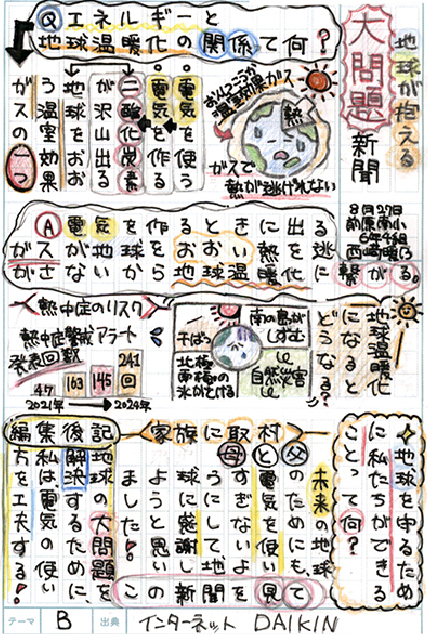 地球が抱える
大問題
新聞
8月27日
前原南小
6年4組
Q エネルギーと
地球温暖化の関係って何?
電気を使う
電気を作る
二酸化炭素
が沢山出る
地球をおお
う温室効果
ガスの一つ
温室効果ガス
熱
ガスで
熱が逃げれない
A 電気を作るときに出る
ガスが地球をおおい熱を逃
がさないから地球温暖化に
繋がる。
地球温暖化
になると
どうなる?
南の島が
しずむ
自然災害
干ばつ
北極
南極の
氷がとける
熱中症のリスク
熱中症警戒アラート
発表回数
47
163
145
241回
2021年
2024年
地球を守るため
に私たちができる
ことって何?
家族に取材
父と母
この新聞を見て
未来の地球
のためにも、
電気を使い
すぎないよ
うにして、地
球に感謝し
ようと思い
ました!
編集後記
地球の大問題を
解決するために
私は電気の使い
方を工夫する!
テーマ B 出典 インターネット DAIKIN